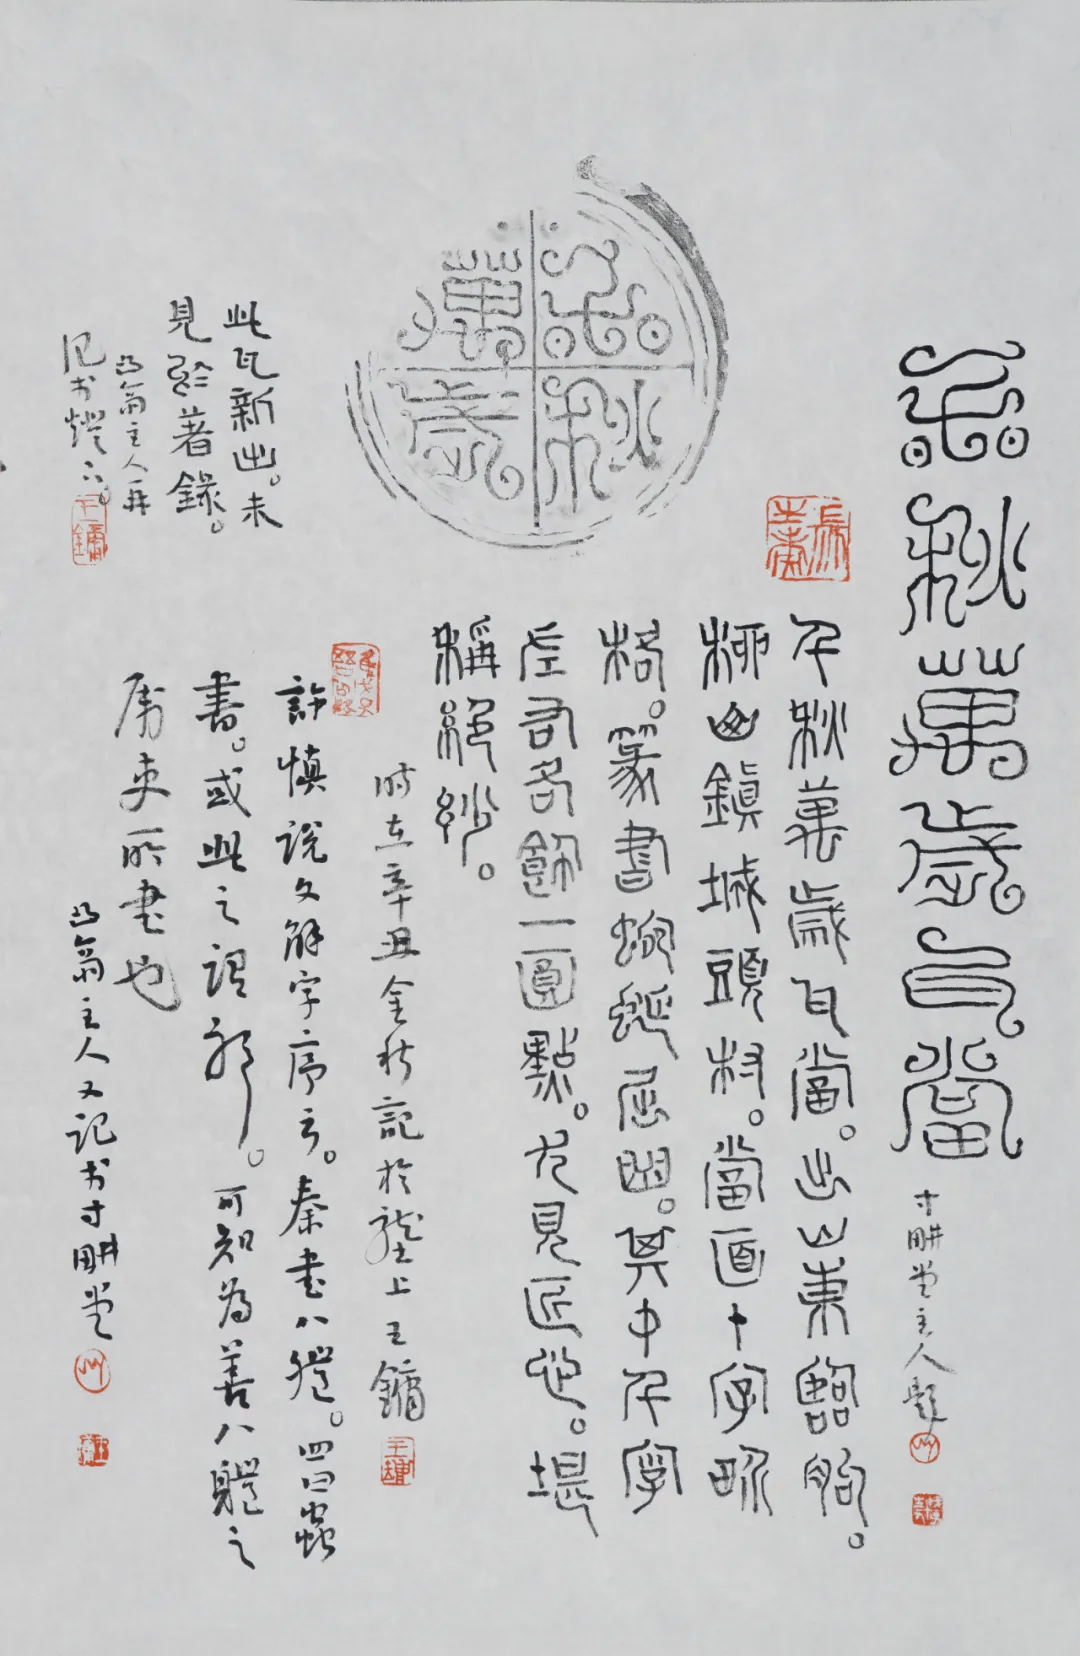 千秋萬歲瓦當
寸畊堂主人題
千秋萬歲
千秋萬歲瓦當。出山東臨朐。
柳山鎮城頭村。當面十字畍
格。篆書蜿蜒屈曲。其中千字
左右各飾一圓點。尤見匠心。堪
稱絕妙。
時在辛丑金秋記於壟上王鏞
許慎説文解字序云。秦書八體。四曰蟲
書。或此之謂耶。可知為善八體之
吏所書也
凸翁主人又記於寸畊堂
此瓦新出。未
見於著錄。
凸翁主人再
記於燈下。
王鏞